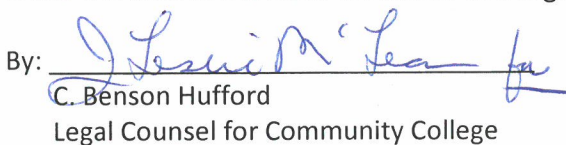 By: J Leslie McLean for
C. Benson Hufford
Legal Counsel for Community College